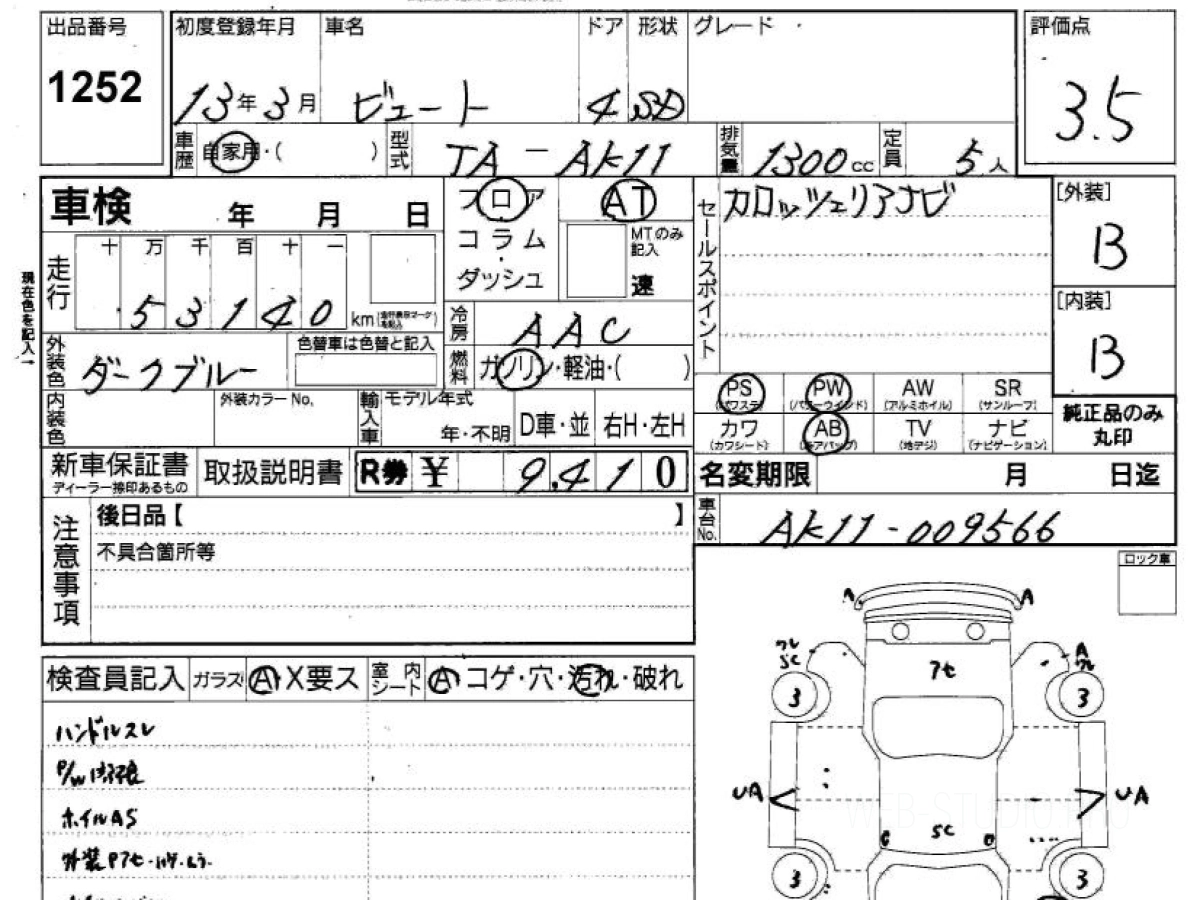 出品番号 初度登録年月 車名 ドア 形状 グレード 評価点
1252 13年 3月 ビュート 4 SD 3.5
車歴 自家用・( ) 型式 TA-AK11 排気量 1300cc 定員 5人
車検 年 月 日 フロア AT セールスポイント カロッツェリアナビ [外装]
コラム MTのみ記入 B
十 万 千 百 十 一
走行 53140 km ダッシュ 速 [内装]
現在色を記入→
冷房 AAC B
外装色 ダークブルー 色替車は色替と記入 燃料 ガソリン・軽油・( )
PS (パワステ) PW (パワーウインド) AW (アルミホイル) SR (サンルーフ) 純正品のみ丸印
内装色 外装カラーNo. 輸入車 モデル年式 年・不明 D車・並 右H・左H
カワ (カワシート) AB (エアバッグ) TV (地デジ) ナビ (ナビゲーション)
新車保証書 ディーラー捺印あるもの 取扱説明書 R券 ¥ 9,410 名変期限 月 日迄
注意事項 後日品【 】 車台No. AK11-009566
不具合箇所等 ロック車
A A
ワレ SC A ワレ
アセ
3 3
検査員記入 ガラス A X要ス 室内シート A コゲ・穴・汚れ・破れ
ハンドルスレ
ホイルAS
UA UA
WEB-STUDIO.PRO
SC
外装Pアセ・ハゲ・ムラ
3 3